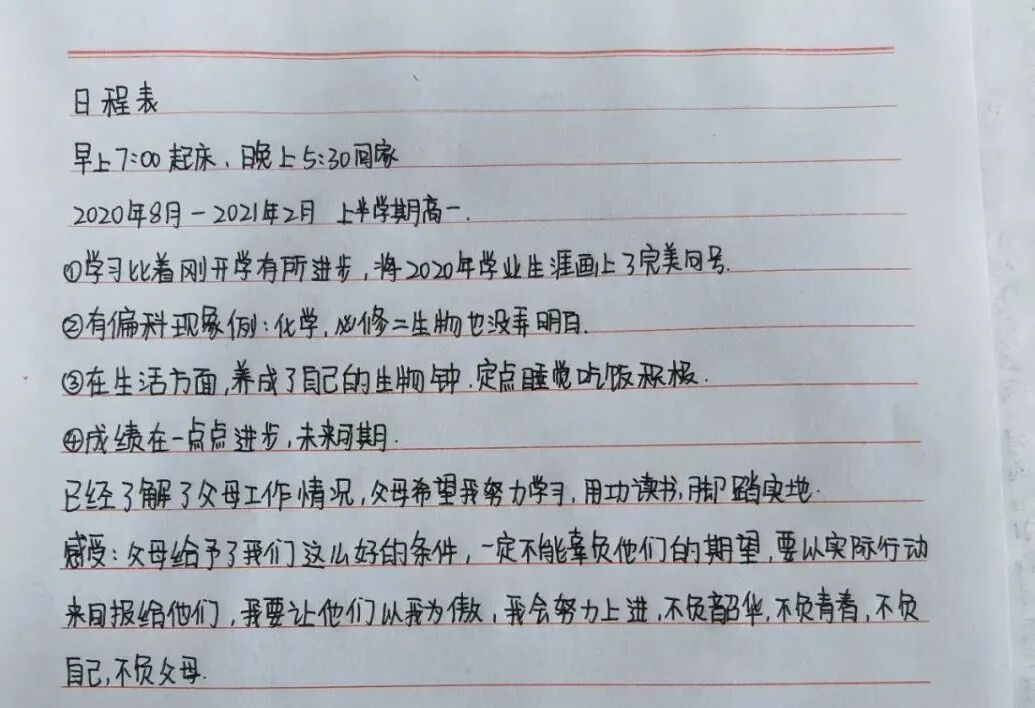 日程表
早上7:00起床、晚上5:30回家
2020年8月-2021年2月 上半学期高一.
①学习比着刚开学有所进步,将2020年学业生涯画上了完美问号.
②有偏科现象例:化学,必修二生物也没弄明白.
③在生活方面,养成了自己的生物钟.定点睡觉吃饭积极.
④成绩在一点点进步,未来可期.
已经了解了父母工作情况,父母希望我努力学习,用功读书,脚踏实地.
感受:父母给予了我们这么好的条件,一定不能辜负他们的期望,要以实际行动
来回报给他们,我要让他们以我为傲,我会努力上进,不负韶华,不负青春,不负
自己,不负父母.